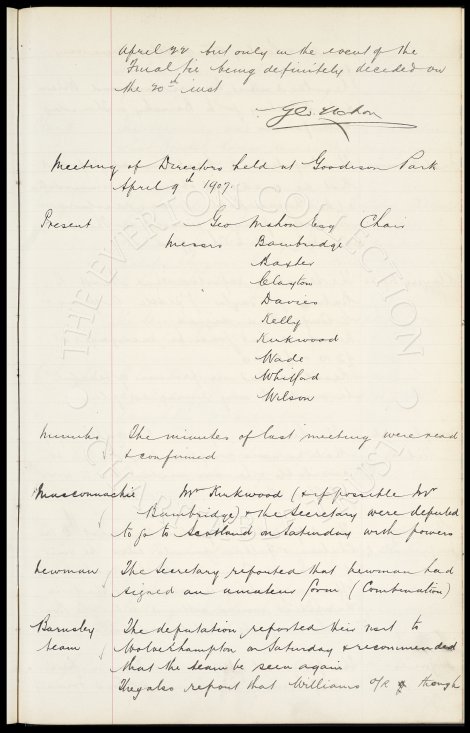 April 22 but only in the event of the
Final tie being definitely decided on
the 20th inst
Geo Mahon
Meeting of Directors held at Goodison Park
April 9th 1907.
Present Geo Mahon Esq Chair
Messrs Bainbridge
Baxter
Clayton
Davies
Kelly
Kirkwood
Wade
Whitford
Wilson
Minutes The minutes of last meeting were read
& confirmed
Musconnachie Mr Kirkwood (& if possible Mr
Bainbridge) & the Secretary were deputed
to go to Scotland on Saturday with powers
Newman The Secretary reported that Newman had
signed an amateur form (Combination)
Barnsley The deputation reported their visit to
team Wolverhampton on Saturday & recommended
that the team be seen again
They also report that Williams o/R though
THE EVERTON COLLECTION
CHARITABLE TRUST